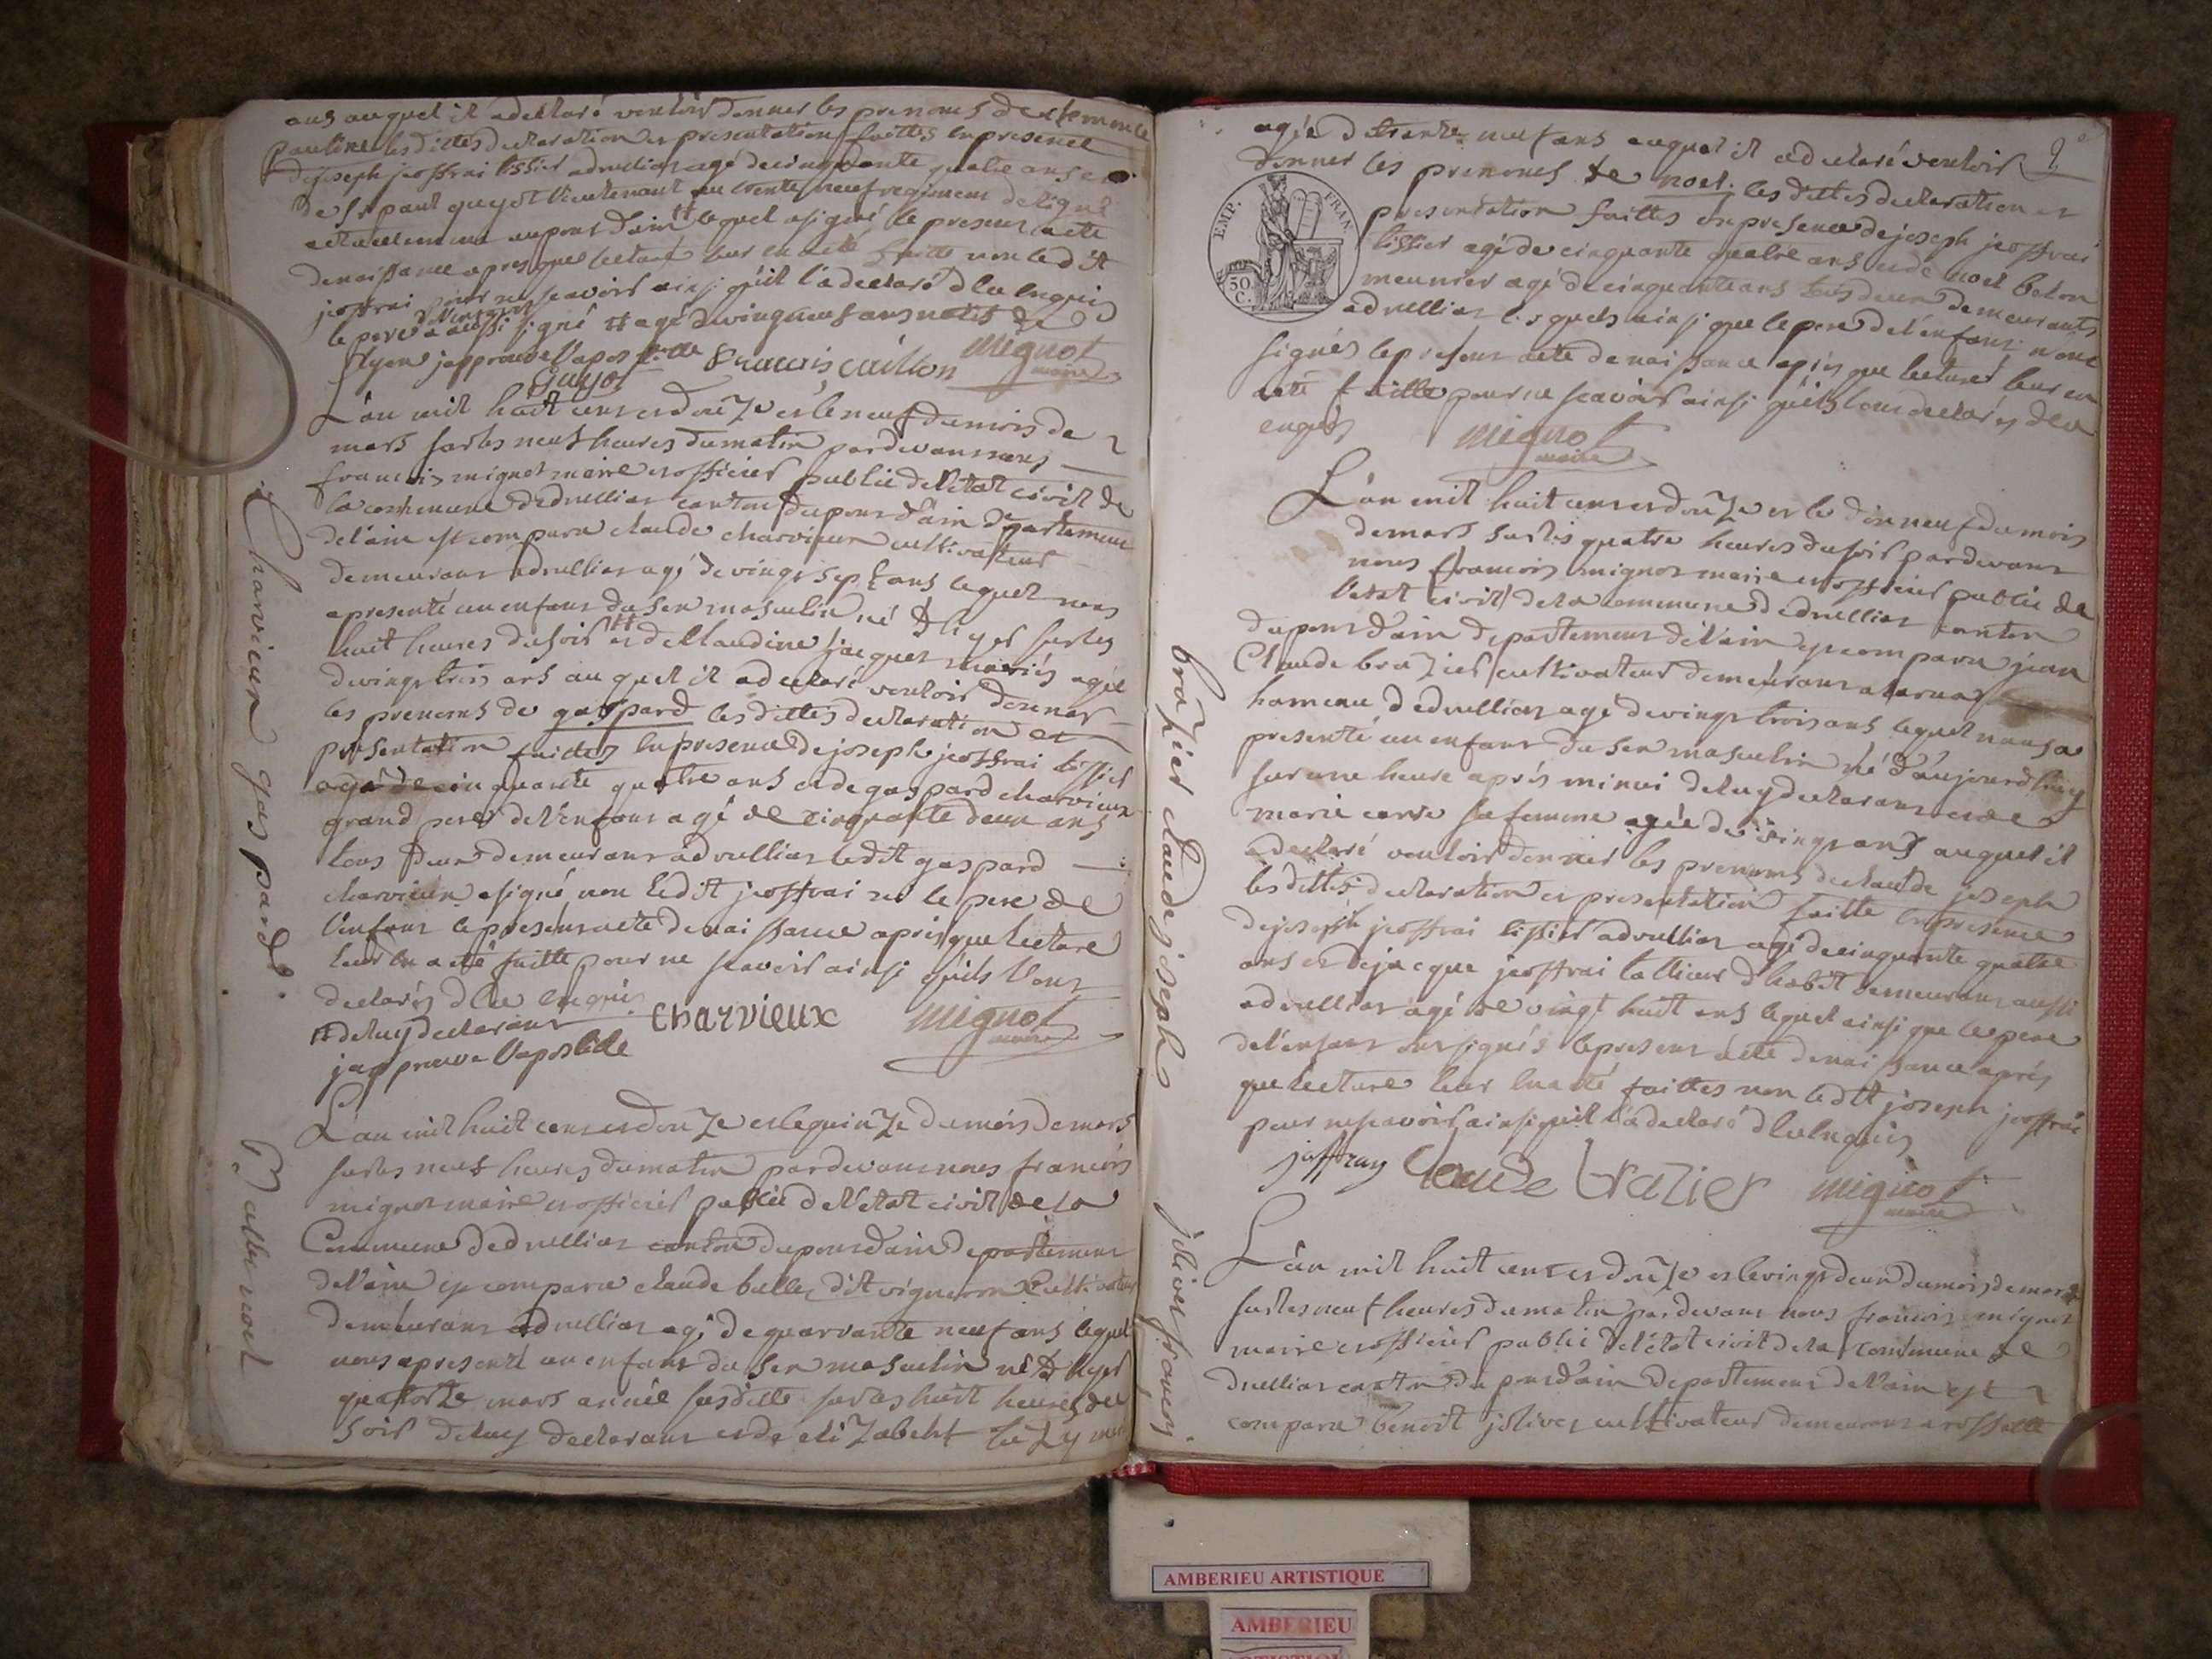 ans auquel il a déclaré vouloir donner les prenoms de clemence
pauline les dittes declaration et presentation faittes en presence
de joseph jeoffrai tissier a druillias agé de cinquante quatre ans et
de st paul guyot lieutenant au trente neuf regiment de ligne
actuellement au pont d'ain ++ lequel a signé le present acte
de naissance apres que lecture leur en a été faitte non ledit
jeoffrai pour ne scavoir ainsi qu'il l'a declaré d'lu enquis
le pere de l'enfant a aussi signé ++ agé de vingt neuf ans natif de
lyon japprouve l'apostille
Guyot françois Caillon mignot
maire
L'an mil huit cent et douze et le neuf du mois de
mars sur les neuf heures du matin pardevant nous
francois mignot maire et officier public de l'état civil de
la commune de druillias canton du pont d'ain departement
de l'ain est comparu claude charvieux cultivateur
demeurant a druillias agé de vingt sept ans lequel nous
a presenté un enfant du sex masculin né d'hyer sur les
huit heures du soir ++ et de claudine jacquet mariés agée
de vingt trois ans auquel il a declaré vouloir donner
les prenoms de gaspard les dittes declaration et
presentation faittes en presence de joseph jeoffrai tissier
agé de cinquante quatre ans et de gaspard charvieux
grand pere de l'enfant agé de cinquante deux ans
tous deux demeurant a druillias ledit gaspard
charvieux a signé non ledit jeoffrai ni le pere de
l'enfant le present acte de naissance apres que lecture
leur en a été faitte pour ne scavoir ainsi qu'ils l'ont
declarés d'lu enquis
++ de luy declarant charvieux mignot
maire
japprouve l'apostille
Charvieux gaspard.
L'an mil huit cent et douze et le quinze du mois de mars
sur les neuf heures du matin pardevant nous francois
mignot maire et officier public de l'état civil de la
Commune de druillias canton du pont d'ain departement
de l'ain est comparu claude ballet dit vigneron Cultivateur
demeurant a druillias agé de quarrante neuf ans lequel
nous a presenté un enfant du sex masculin né d'hyer
quatorze mars année susditte sur les huit heures du
soir de luy declarant et de elizabeht
Ballet noel
agée de trante neuf ans auquel il a declaré vouloir
donner les prenoms de noel. les dittes declaration et
presentation faittes en presence de joseph jeoffrai
tissier agé de cinquante quatre ans et de noel belon
meunier agé de cinquante ans tous deux demeurants
a druillias lesquels ainsi que le pere de l'enfant n'ont
signés le present acte de naissance apres que lecture leur en
a été faitte pour ne scavoir ainsi qu'ils l'ont declarés d'lu
enquis mignot
maire
EMP. FRAN.
50
C.
L'an mil huit cent et douze et le dix neuf du mois
de mars sur les quatre heures du soir pardevant
nous francois mignot maire et officier public de
l'état civil de la commune de druillias canton
du pont d'ain departement de l'ain est comparu jean
Claude brazier cultivateur demeurant a
hameau de druillias agé de vingt trois ans lequel nous a
presenté un enfant du sex masculin né d'aujourd'huy
sur une heure aprés minui de luy declarant et de
marie sa femme agée de vingt ans auquel il
a declaré vouloir donner les prenoms de claude joseph
les dittes declaration et presentation faitte en presence
de joseph jeoffrai tissier a druillias agé de cinquante quatre
ans et de jacque jeoffrai tallieur d'habit demeurant aussi
a druillias agé de vingt huit ans lequel ainsi que le pere
de l'enfant ont signés le present acte de naissance aprés
que lecture leur en a été faittes non ledit joseph jeoffrai
pour ne scavoir ainsi qu'il l'a declaré d'lu enquis
jeffray Claude brazier mignot
maire
brazier claude joseph
L'an mil huit cent et douze et le vingt deux du mois de mars
sur les neuf heures du matin pardevant nous francois mignot
maire et officier public de l'état civil de la commune de
druillias canton du pont d'ain departement de l'ain est
comparu benoit jolivet cultivateur demeurant a rossette
jolivet francois.
AMBERIEU ARTISTIQUE
AMBERIEU